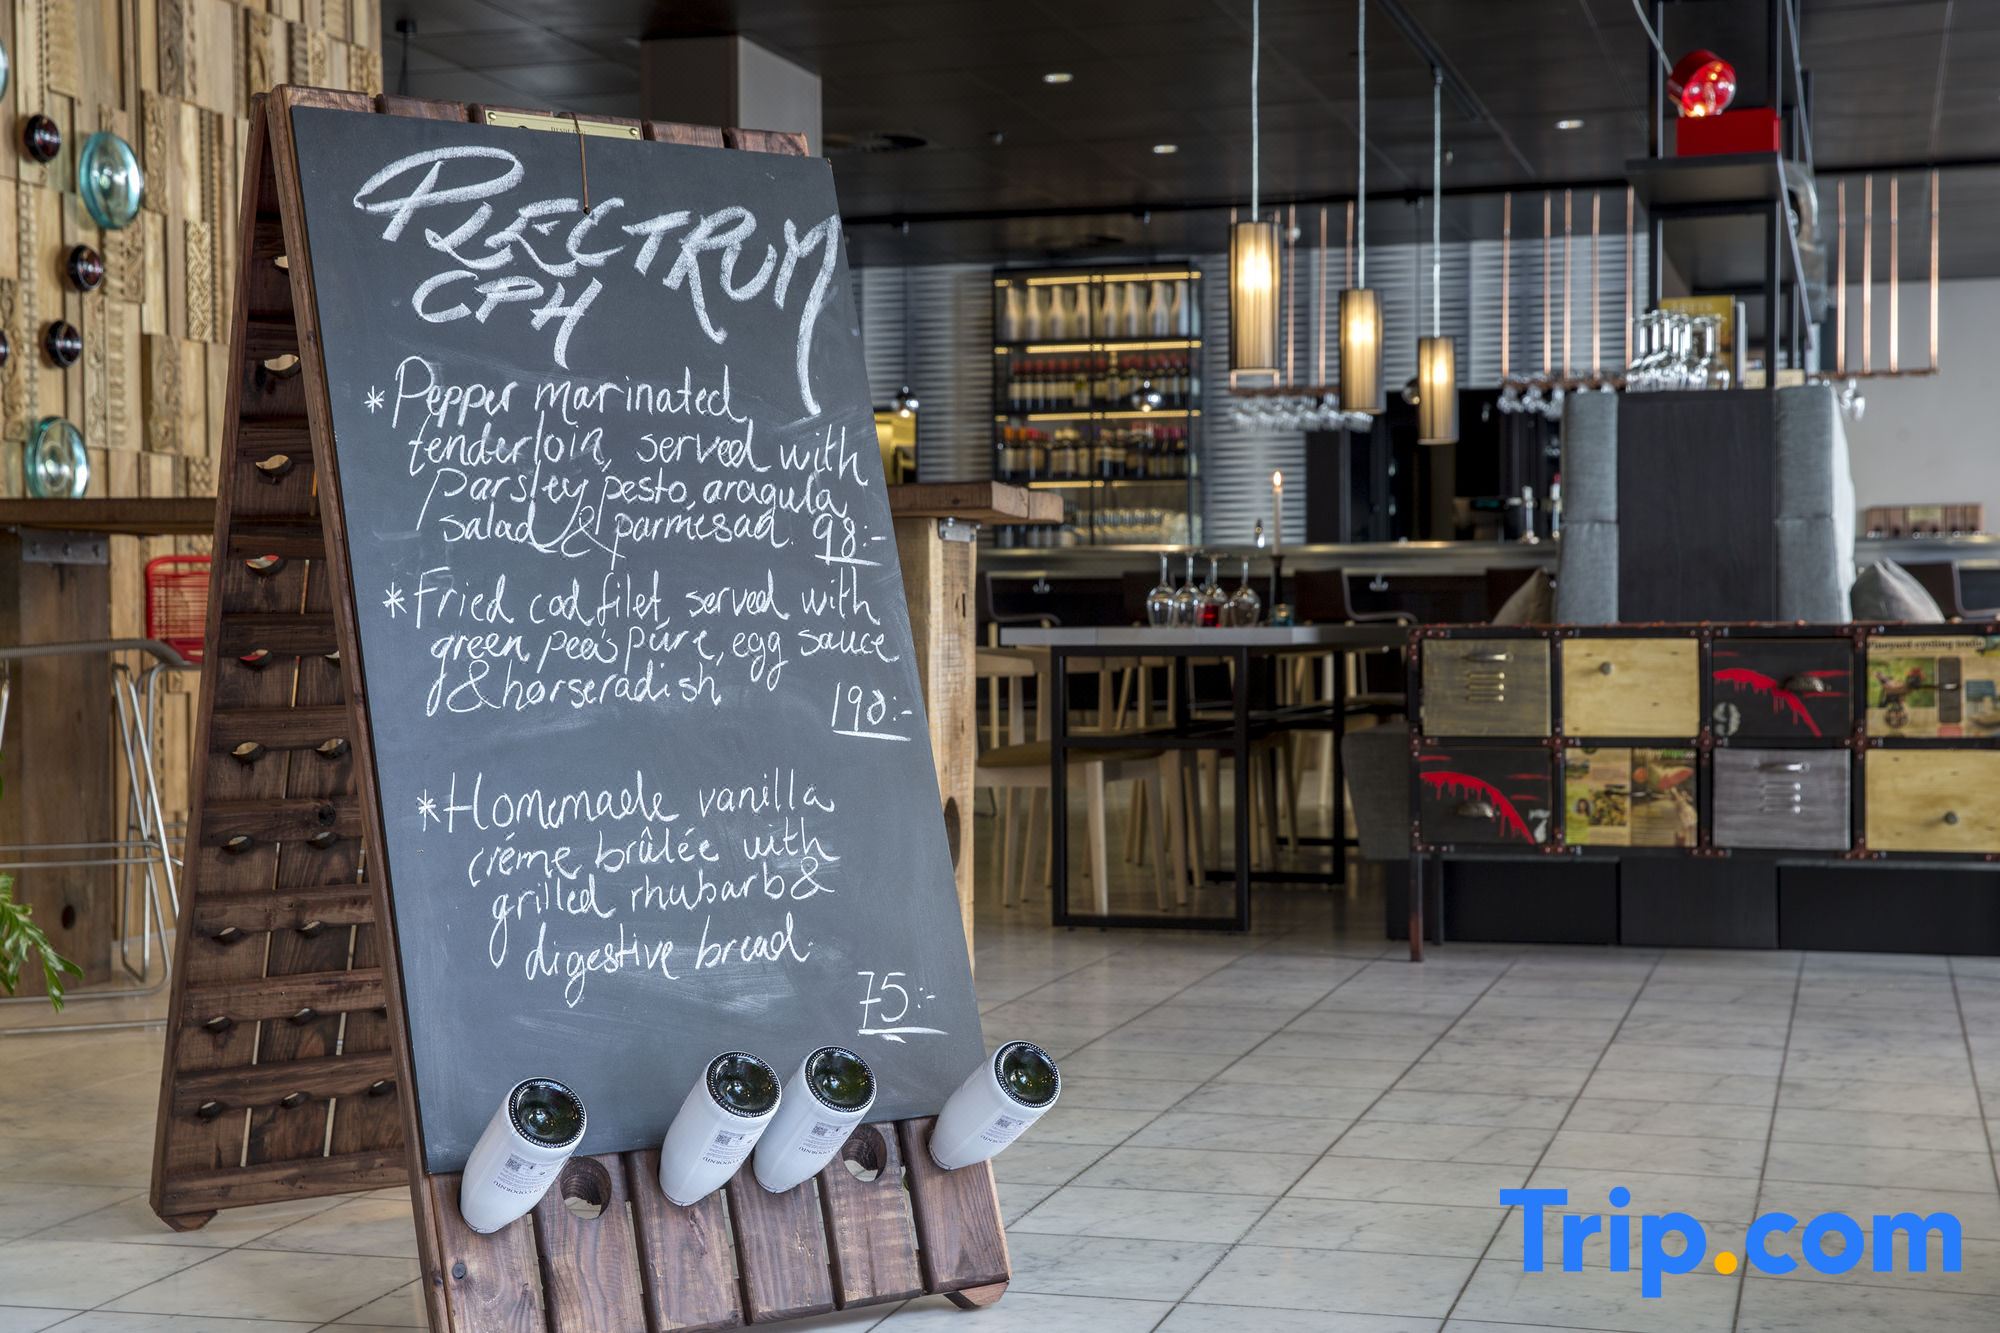 PLECTRUM
CPH
* Pepper marinated
tenderloin, served with
Parsley pesto, aragula
salad & parmesan. 98:-
* Fried cod filet, served with
green pea's púre, egg sauce
& horseradish
198:-
* Homemade vanilla
créme brûlée with
grilled rhubarb &
digestive bread.
75:-
CODORNÍU
CODORNÍU
Vineyard cycling trails
7
Trip.com